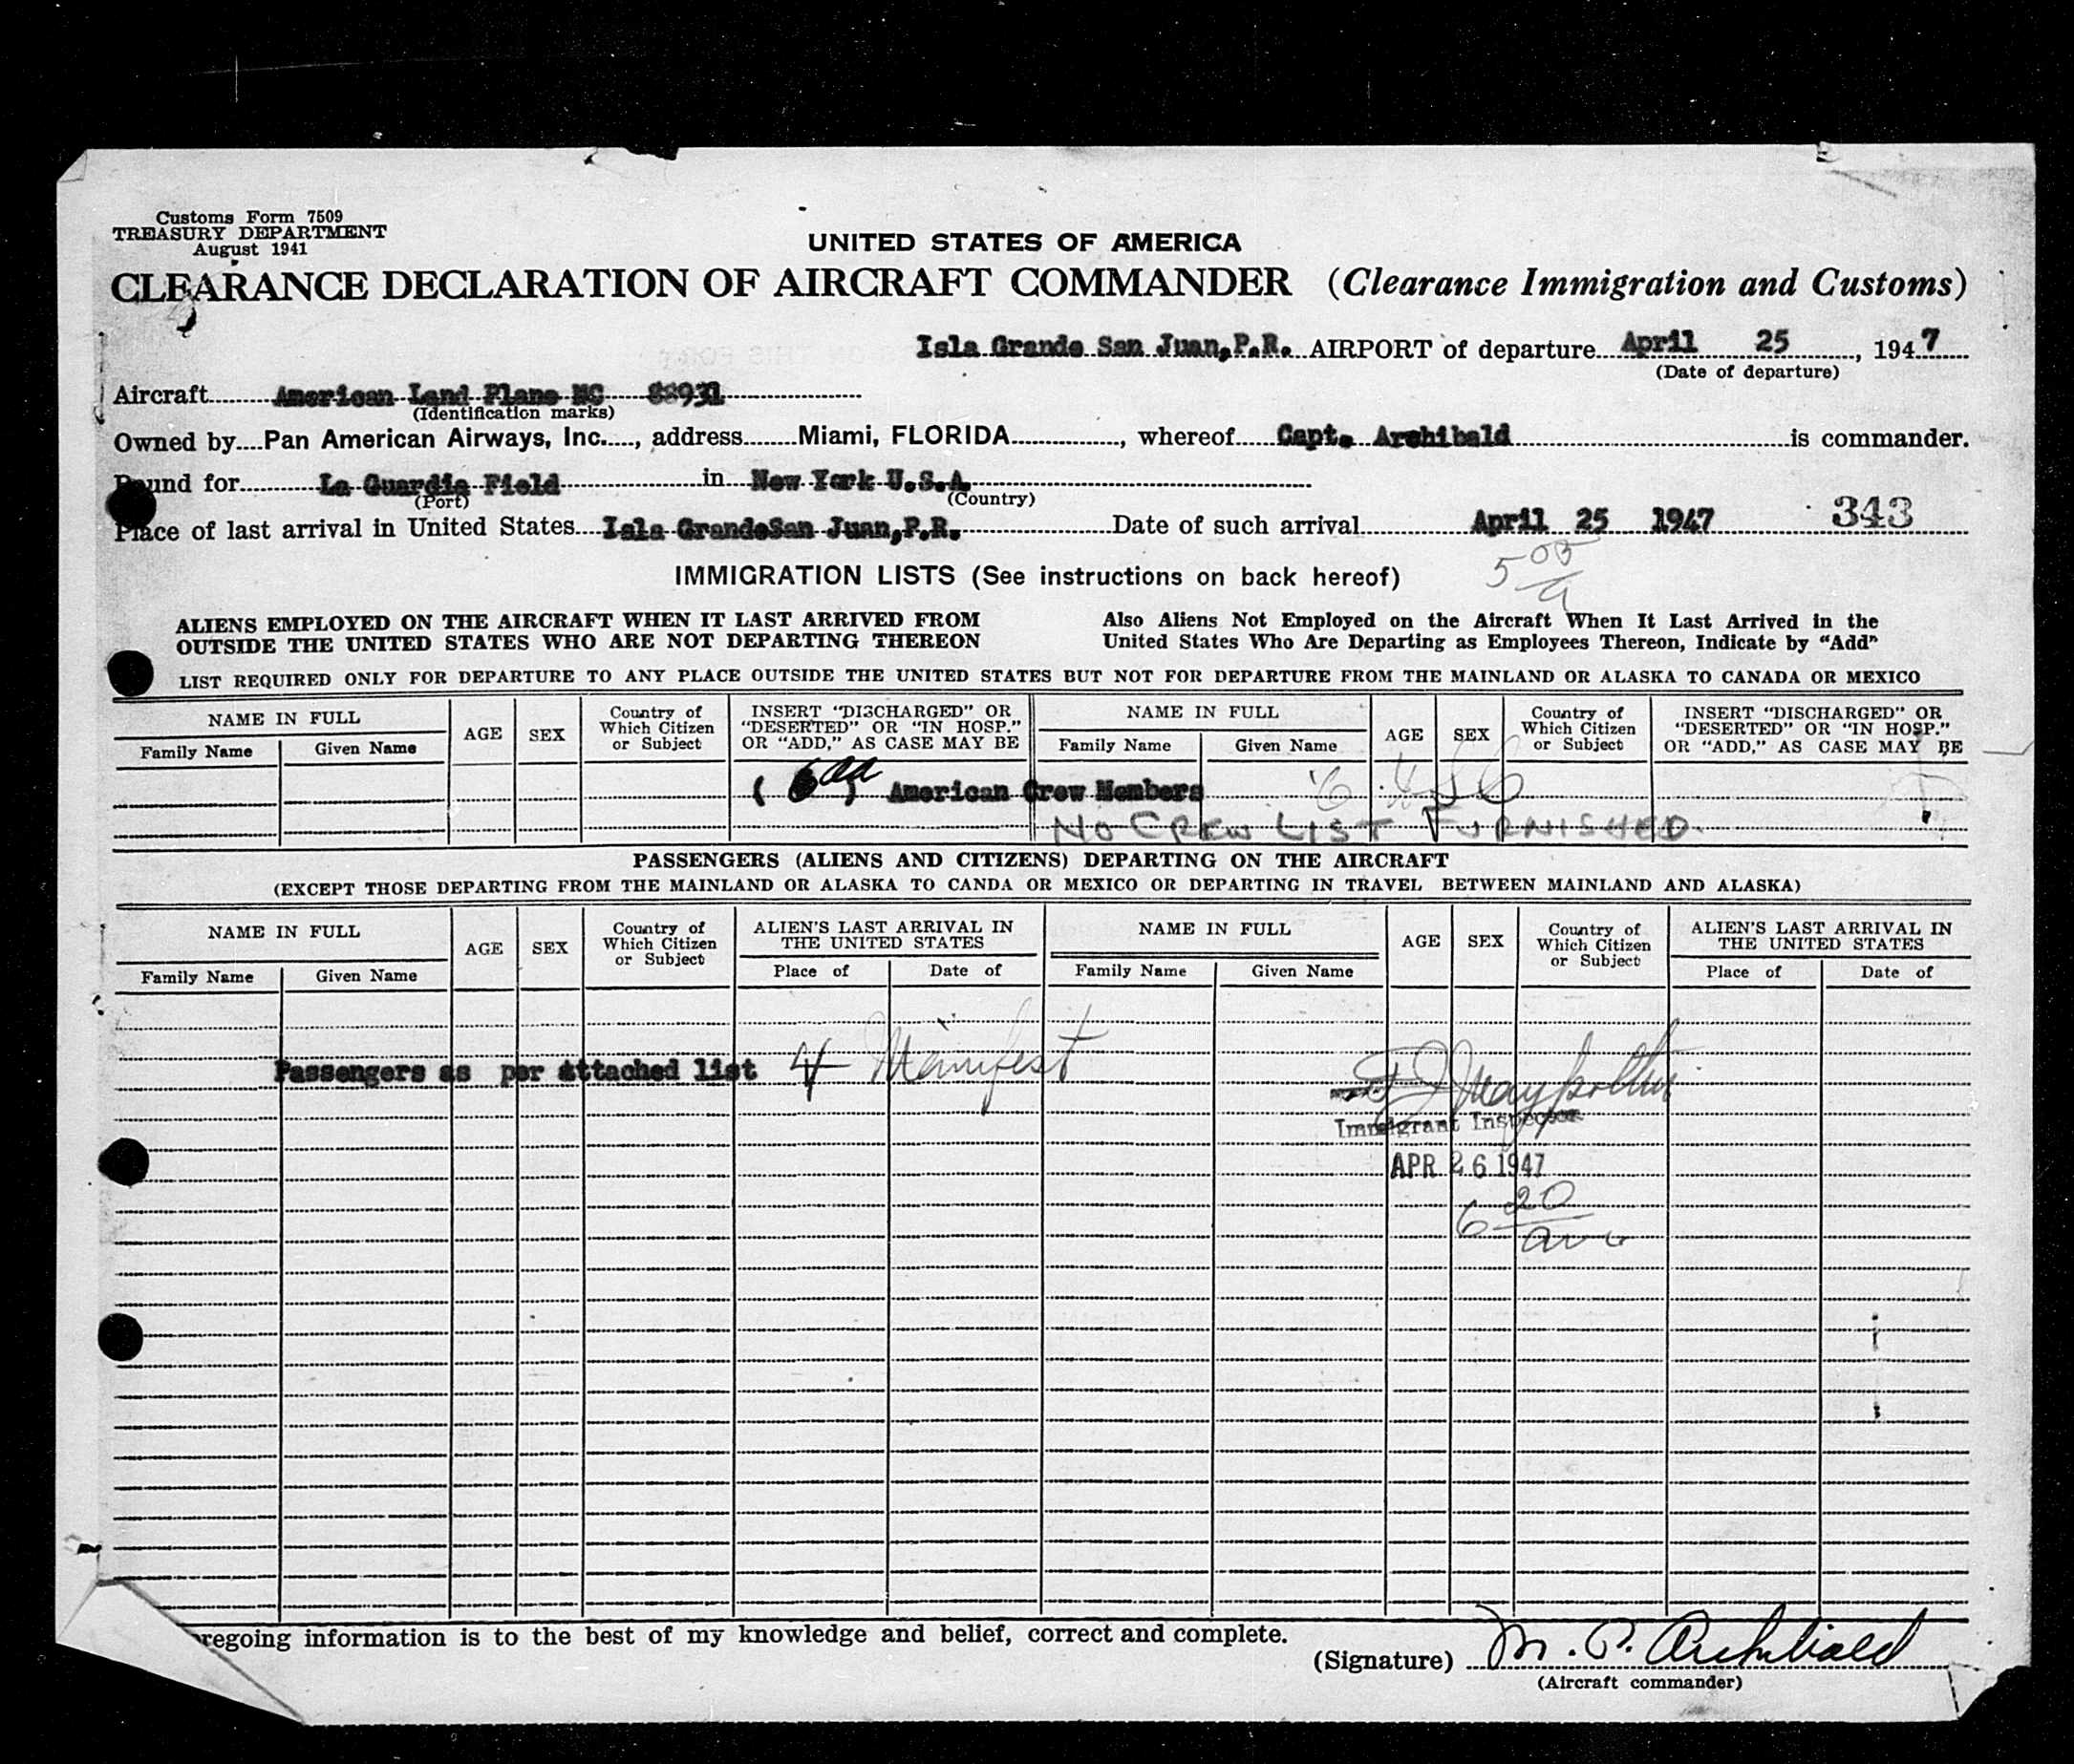 Customs Form 7509
TREASURY DEPARTMENT
August 1941
UNITED STATES OF AMERICA
CLEARANCE DECLARATION OF AIRCRAFT COMMANDER (Clearance Immigration and Customs)
Isla Grande San Juan,P.R. AIRPORT of departure April 25, 1947
(Date of departure)
Aircraft American Land Plane NC 88931
(Identification marks)
Owned by Pan American Airways, Inc., address Miami, FLORIDA, whereof Capt. Archibald is commander.
Bound for La Guardia Field in New York U.S.A.
(Port) (Country)
Place of last arrival in United States Isla GrandeSan Juan,P.R. Date of such arrival April 25 1947 343
IMMIGRATION LISTS (See instructions on back hereof) 5 05
ALIENS EMPLOYED ON THE AIRCRAFT WHEN IT LAST ARRIVED FROM
OUTSIDE THE UNITED STATES WHO ARE NOT DEPARTING THEREON
Also Aliens Not Employed on the Aircraft When It Last Arrived in the
United States Who Are Departing as Employees Thereon, Indicate by "Add"
LIST REQUIRED ONLY FOR DEPARTURE TO ANY PLACE OUTSIDE THE UNITED STATES BUT NOT FOR DEPARTURE FROM THE MAINLAND OR ALASKA TO CANADA OR MEXICO
NAME IN FULL
Family Name Given Name
AGE
SEX
Country of
Which Citizen
or Subject
INSERT "DISCHARGED" OR
"DESERTED" OR "IN HOSP."
OR "ADD," AS CASE MAY BE
NAME IN FULL
Family Name Given Name
AGE
SEX
Country of
Which Citizen
or Subject
INSERT "DISCHARGED" OR
"DESERTED" OR "IN HOSP."
OR "ADD," AS CASE MAY BE
( 6 ) American Crew Members 6
NO CREW LIST FURNISHED.
PASSENGERS (ALIENS AND CITIZENS) DEPARTING ON THE AIRCRAFT
(EXCEPT THOSE DEPARTING FROM THE MAINLAND OR ALASKA TO CANDA OR MEXICO OR DEPARTING IN TRAVEL BETWEEN MAINLAND AND ALASKA)
NAME IN FULL
Family Name Given Name
AGE
SEX
Country of
Which Citizen
or Subject
ALIEN'S LAST ARRIVAL IN
THE UNITED STATES
Place of Date of
NAME IN FULL
Family Name Given Name
AGE
SEX
Country of
Which Citizen
or Subject
ALIEN'S LAST ARRIVAL IN
THE UNITED STATES
Place of Date of
Passengers as per attached list 4 Manifest
Immigrant Inspector
APR 26 1947
6 20
am
regoing information is to the best of my knowledge and belief, correct and complete.
(Signature) M. P. Archibald
(Aircraft commander)